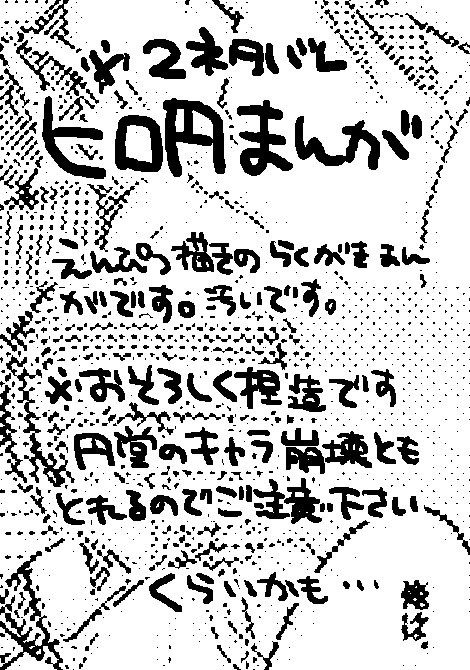 ※2ネタバレ
ヒロ円まんが
えんぴつ描きのらくがきまん
がです。汚いです。
※おそろしく捏造です
円堂のキャラ崩壊とも
とれるのでご注意下さい
くらいかも…